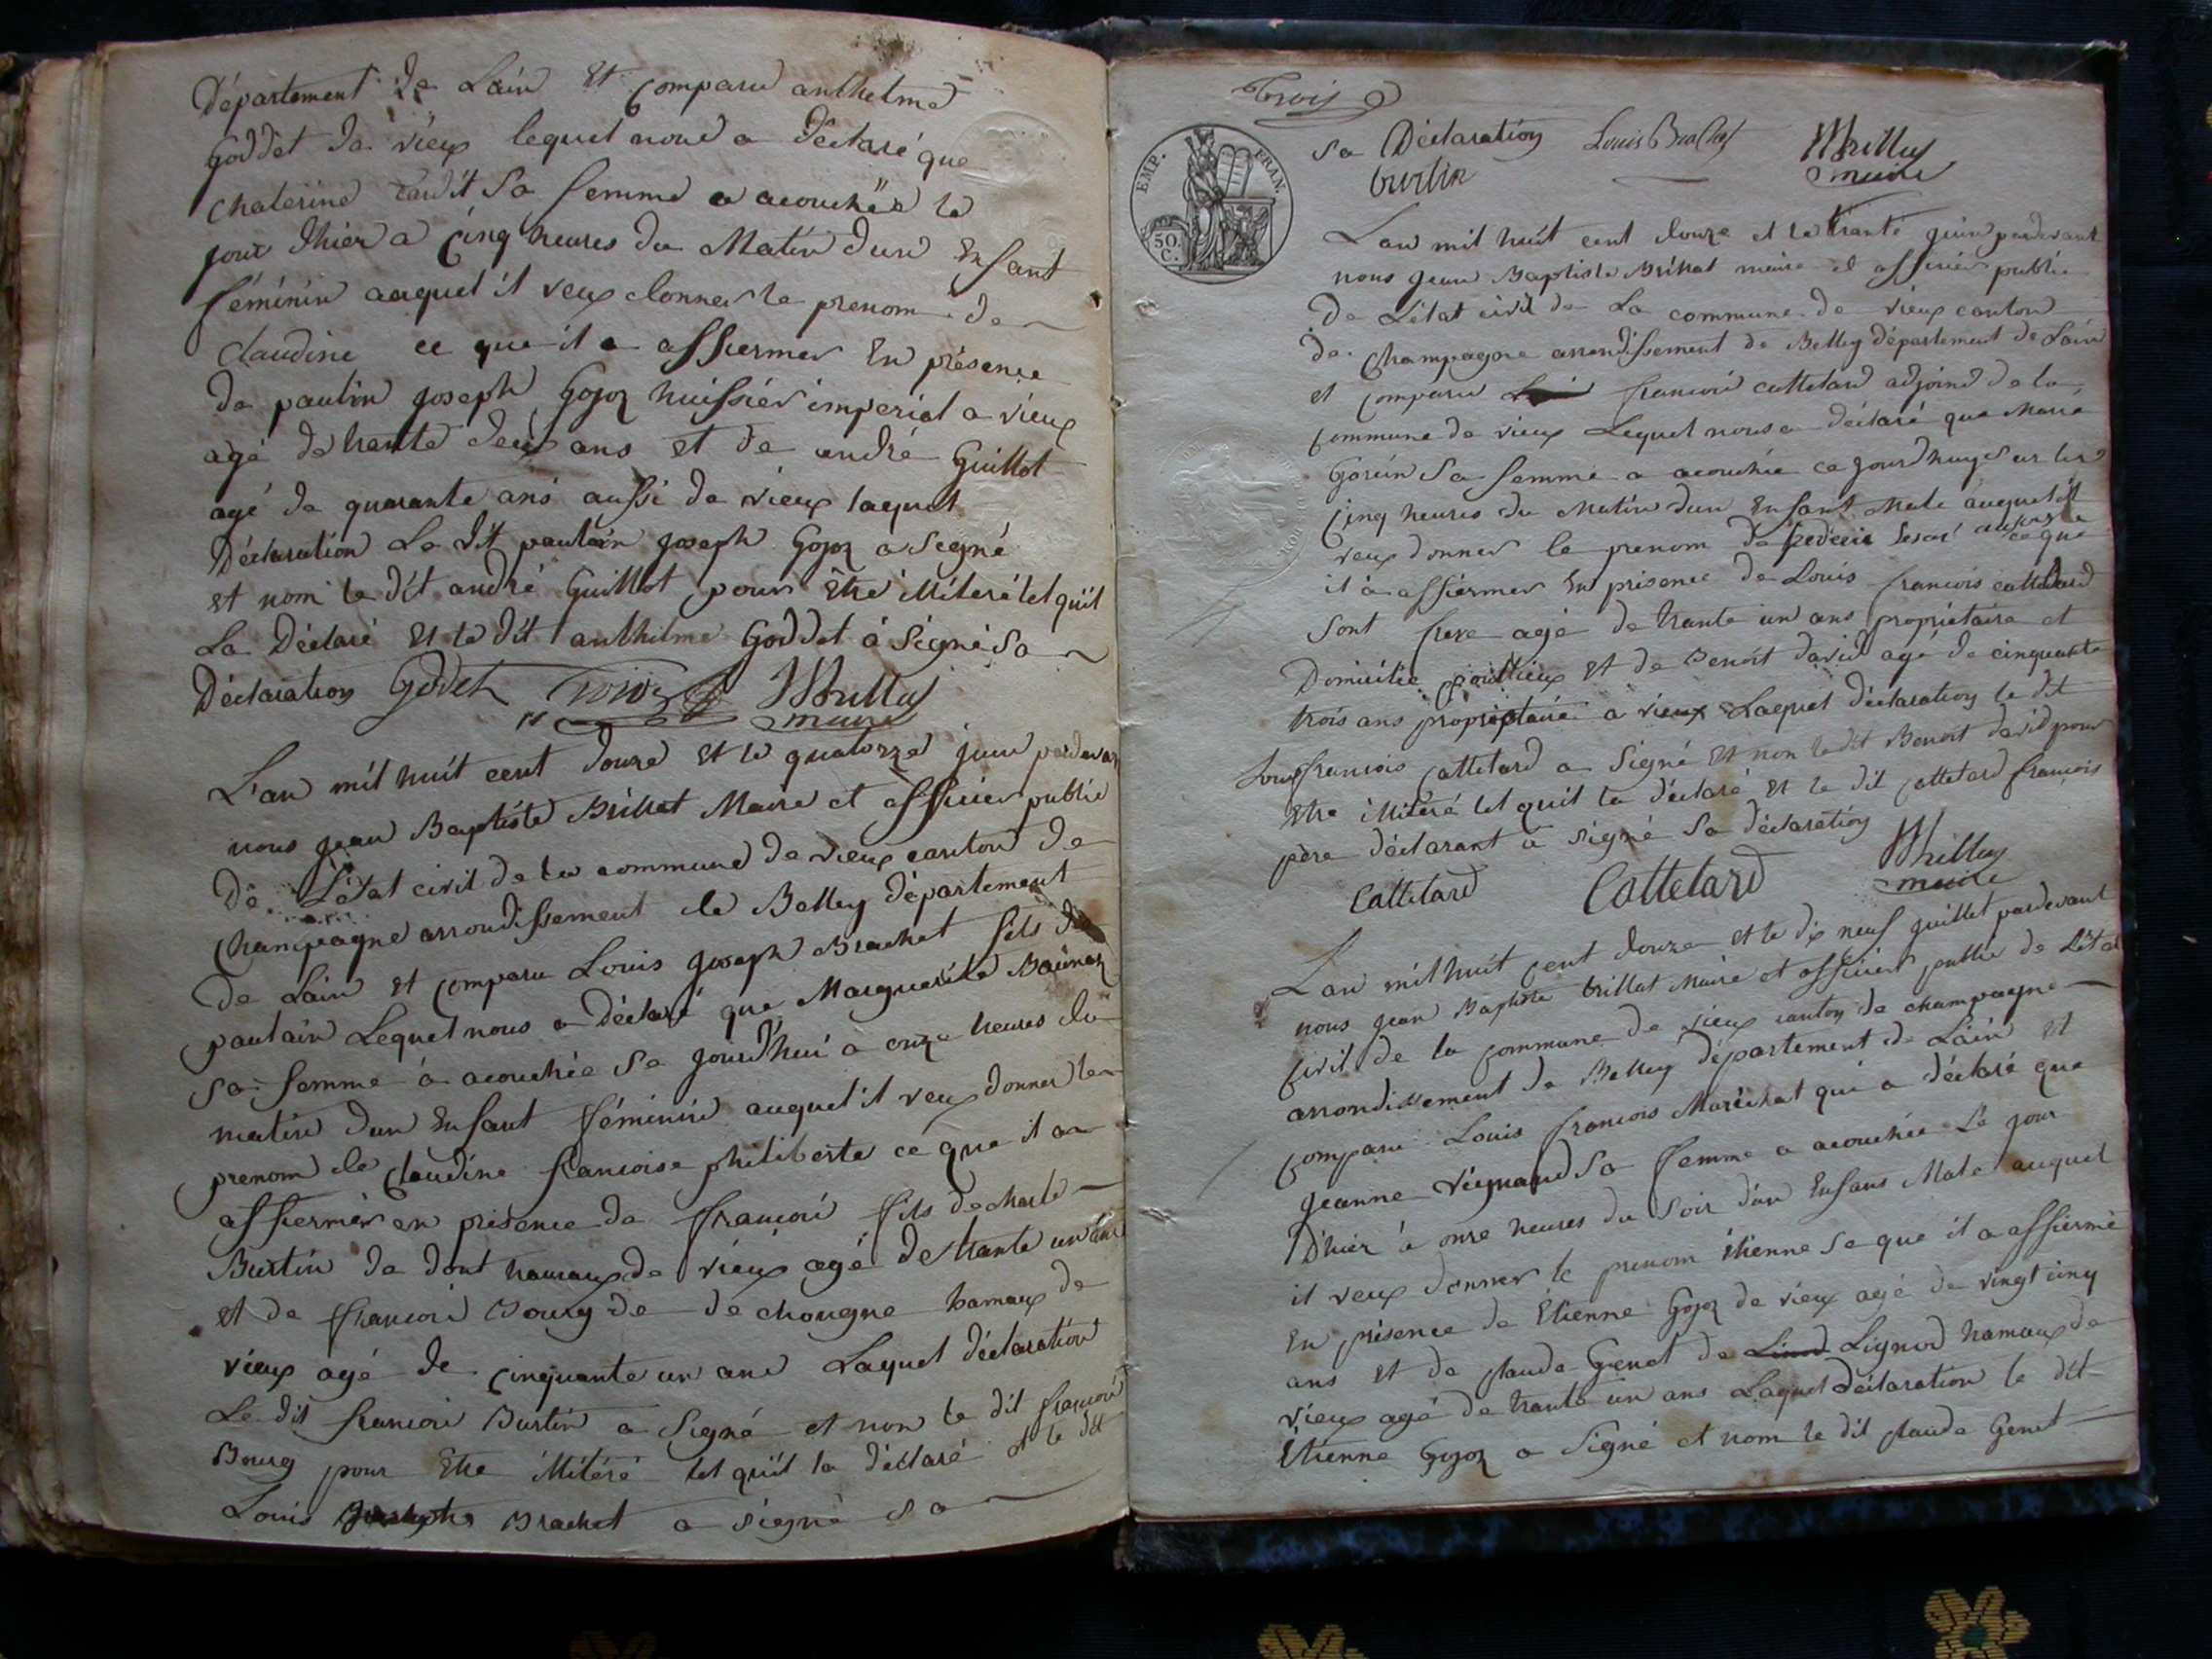 Département de Lain Et comparu anthelme
Goddet de vieux lequel nous a déclaré que
Chaterine sa femme a acouchée le
jour dhier a cinq heures du Matin dun Enfant
féminin auquel il veux donner le prenom de
Claudine ce que il a affiermer En présence
de paulin joseph Gojoz huissier imperial a vieux
agé de trante deux ans et de andré Guillot
agé de quarante ans aussi de vieux laquel
Déclaration Le dit paulin joseph Gojoz a Segné
et nom le dit andré Guillot pour Etre illiteré tel quil
La Déclaré Et le dit anthelme Goddet a Signé Sa
Déclaration Godet Gojoz Brillat
maire
L'an mil huit cent douze Et le quatorze juin pardevant
nous jean Baptiste Brillat Maire et officier publie
de L'état civil de la commune de vieux canton de
Champagne arrondissement de Belley département
de Lain et comparu Louis joseph Brachet fils de
paulain Lequel nous a déclaré que Marguerite
sa femme a acouchée se jourdhui a onze heures du
matin dun Enfant féminin auquel il veux donner le
prenom de Claudine francoise philiberte ce que il a
affiermer en présence de francoi fils de charle
Burtin de dont hamaux de vieux agé de trante un ans
et de francoi Bourg de de chongne hamaux de
vieux agé de cinquante un ans Laquel déclaration
Le dit francoi Burtin a Signé et non le dit francoi
Bourg pour Etre illitéré tel quil la déclaré et le dit
Louis Brachet a signé sa
Trois
EMP. FRAN.
50. C.
sa Déclaration Louis Brachet Brillat
burtin maire
Lan mil huit cent douze et le trante juin pardevant
nous jean Baptiste Brillat maire et officier publie
de L'état civil de La commune de vieux canton
de Champagne arrondissement de Belley département de Lain
et comparu francoi cattelard adjoint de la
commune de vieux Lequel nous a déclaré que Marie
sa femme a acouchée ce jourdhuy sur les
cinq heures du Matin dun Enfant Male auquel il
veux donner le prenom de frederic ce que
il a affiermer En présence de Louis francois cattelard
sont frere agé de trante un ans propriétaire et
Domicilié Et de Benoit david agé de cinquante
trois ans propriétaire a vieux Laquel déclaration le dit
Louis francois cattelard a Signé Et non le dit Benoit david pour
Etre illiteré tel quil la déclaré Et le dit cattelard francois
père déclarant a signé Sa déclaration
Cattelard Cattelard Brillat
maire
Lan mil huit cent douze et le dix neuf juillet pardevant
nous jean Baptiste brillat Maire et officier publie de Létat
civil de la commune de vieux canton de champagne
arrondissement de Belley département de Lain Et
comparu Louis francois Maréchat qui a déclaré que
jeanne sa femme a acouchée Le jour
Dhier a onze heures du Soir d'un Enfans Male auquel
il veux donner le prenom étienne se que il a affiermé
En présence de Etienne Gojoz de vieux agé de vingt cinq
ans Et de claude Genet de Lignod hamaux de
vieux agé de trante un ans Laquel déclaration le dit
Etienne Gojoz a Signé et nom le dit claude Genet